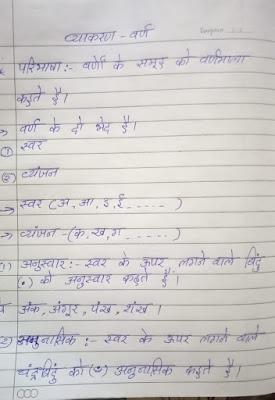 व्याकरण - वर्ण
परिभाषा :- वर्णों के समूह को वर्णमाला
कहते हैं।
→ वर्ण के दो भेद हैं।
① स्वर
② व्यंजन
→ स्वर (अ, आ, इ, ई, - - - - - )
→ व्यंजन - (क, ख, ग - - - - - )
(1) अनुस्वार :- स्वर के ऊपर लगने वाले बिंदु
(ं) को अनुस्वार कहते हैं।
अंक, अंगूर, पंख, शंख।
(2) अनुनासिक :- स्वर के ऊपर लगने वाले
चंद्रबिंदु को (ँ) अनुनासिक कहते हैं।